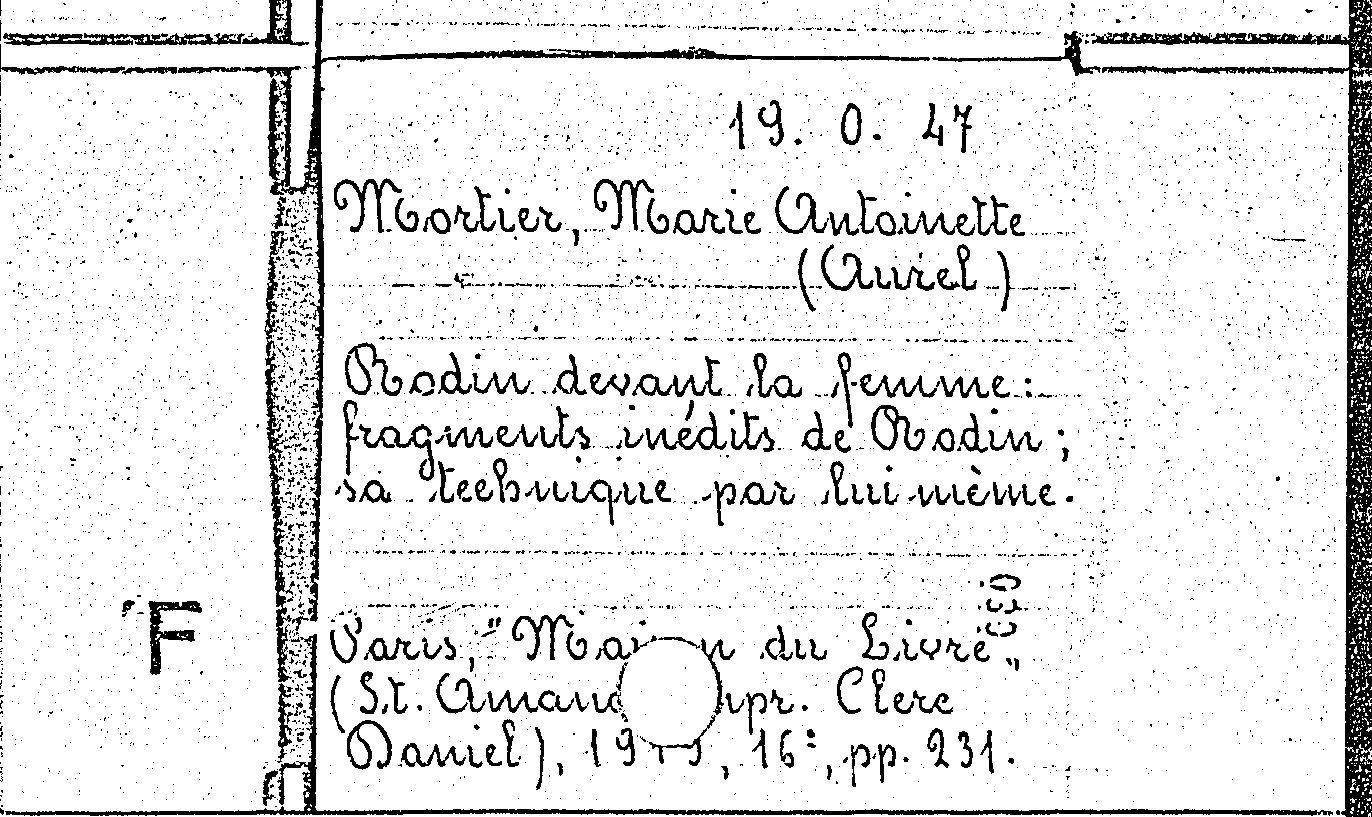 19. 0. 47
Mortier, Marie Antoinette
(Aurel)
Rodin devant la femme:
fragments inédits de Rodin;
sa technique par lui même.
F
Paris, " du Livre"
(St. Clerc
Daniel), 16°, pp. 231.